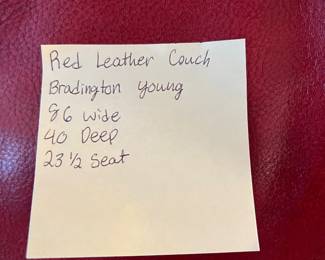 Red Leather Couch
Bradington young
86 wide
40 Deep
23 1/2 Seat